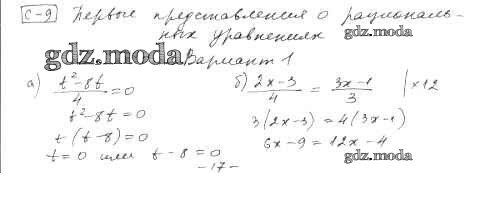 С-9 Первые представления о рациональ-
ных уравнениях gdz.moda
gdz.moda Вариант 1
а) (t²-8t)/4 = 0 б) (2x-3)/4 = (3x-1)/3 | ×12
t²-8t=0 3(2x-3)=4(3x-1)
t(t-8)=0 6x-9=12x-4
t=0 или t-8=0 gdz.moda
-17-